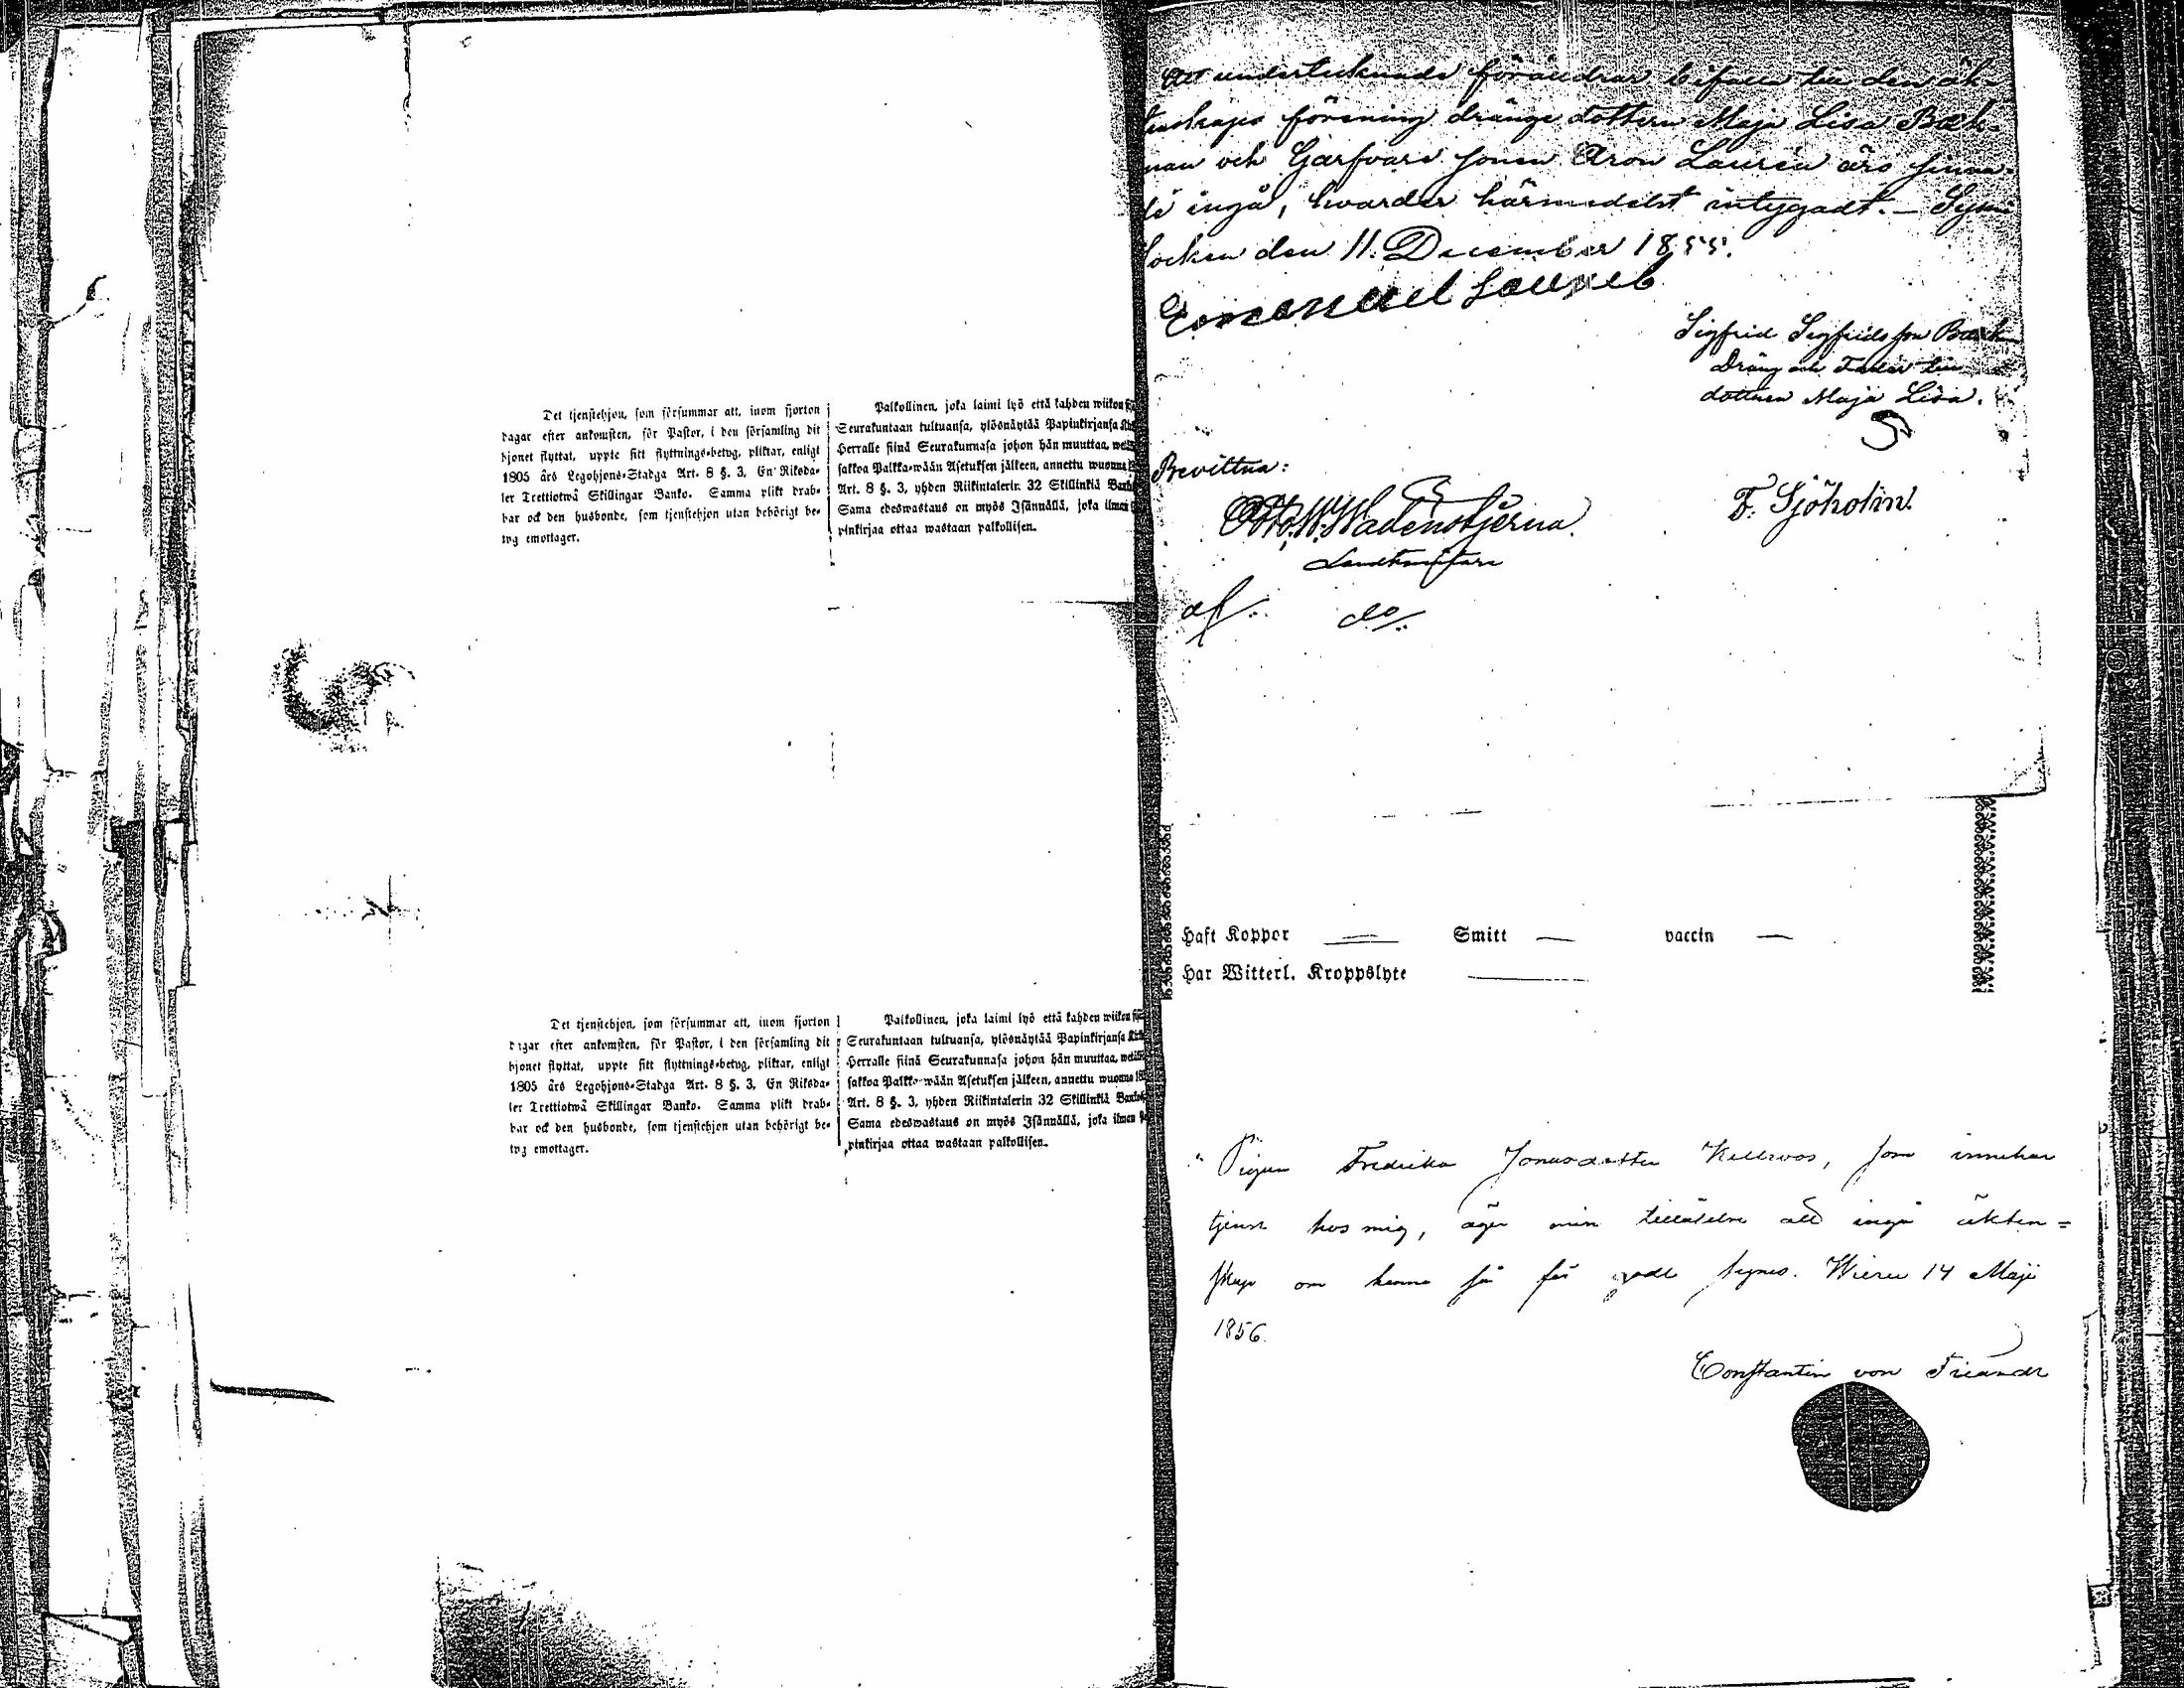 Det tjenstehjon, som försummar att, inom fjorton
dagar efter ankomsten, för Pastor, i den församling dit
hjonet flyttat, uppte sitt flyttnings-betyg, pliktar, enligt
1805 års Legohjons-Stadga Art. 8 §. 3, En Riksda-
ler Trettiotwå Skillingar Banko. Samma plikt drab-
bar ock den husbonde, som tjenstehjon utan behörigt be-
tyg emottager.
Palkollinen, joka laimi lyö että kahden wiikon
Seurakuntaan tultuansa, ylösnäytää Papinkirjansa
Herralle siinä Seurakunnasa johon hän muuttaa,
sakkoa Palkka-wään Asetuksen jälkeen, annettu wuonna
Art. 8 §. 3, yhden Riikintalerin 32 Skillinkiä
Sama edeswastaus on myös Isännällä, joka ilman
pinkirjaa ottaa wastaan palkollisen.
Det tjenstehjon, som försummar att, inom fjorton
dagar efter ankomsten, för Pastor, i den församling dit
hjonet flyttat, uppte sitt flyttnings-betyg, pliktar, enligt
1805 års Legohjons-Stadga Art. 8 §. 3, En Riksda-
ler Trettiotwå Skillingar Banko. Samma plikt drab-
bar ock den husbonde, som tjenstehjon utan behörigt be-
tyg emottager.
Palkollinen, joka laimi lyö että kahden wiikon
Seurakuntaan tultuansa, ylösnäytää Papinkirjansa
Herralle siinä Seurakunnasa johon hän muuttaa,
sakkoa Palkka-wään Asetuksen jälkeen, annettu wuonna
Art. 8 §. 3, yhden Riikintalerin 32 Skillinkiä
Sama edeswastaus on myös Isännällä, joka ilman
pinkirjaa ottaa wastaan palkollisen.
Att undertecknade föräldrar bifalla till den äk-
tenskaps förening dränge dottern Maja Lisa Bæck-
man och Garfvare sonen Aron Laurén äro sinna-
de ingå, warder härmedelst intygadt. —
Socken den 11. December 1855.
Emanuel
Sigfrid Sigfridsson
Dräng och Fader till
dottren Maja Lisa.
Bevittna:
Otto W. Wadenstjerna. F. Sjöholm.
Landtmätare
af. do
Haft Koppor — Smitt — vaccin —
Har Witterl. Kroppslyte —
Pigan Fredrika Jonasdotter, som innehar
tjenst hos mig, äger min tillåtelse att ingå äkten=
skap om henne så för godt synes. Wiern 14 Maji
1856.
Constantin von